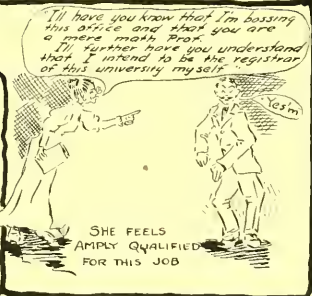 "I'll have you know that I'm bossing
this office and that you are
a mere math Prof.
I'll further have you understand
that I intend to be the registrar
of this university myself"
Yes'm
SHE FEELS
AMPLY QUALIFIED
FOR THIS JOB